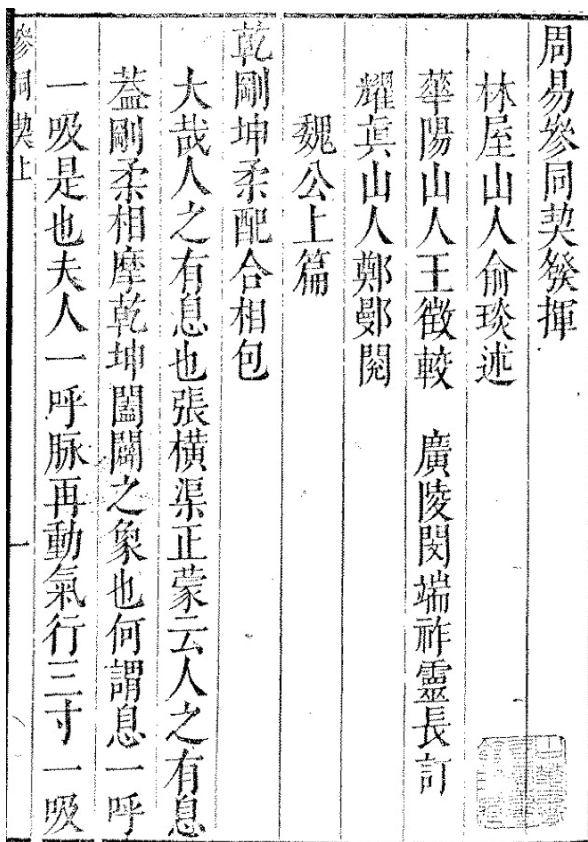 周易參同契發揮
林屋山人俞琰述
華陽山人王徵較　廣陵閔端祚靈長訂
耀真山人鄭鄤閱
魏公上篇
乾剛坤柔配合相包
大哉人之有息也張橫渠正蒙云人之有息
蓋剛柔相摩乾坤闔闢之象也何謂息一呼
一吸是也夫人一呼脉再動氣行三寸一吸
參同契上
一